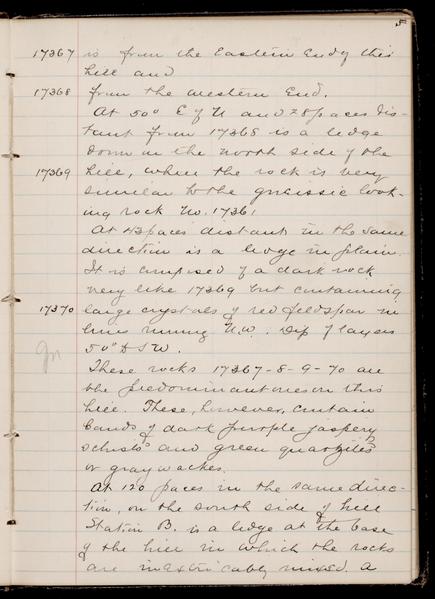 5
17367 is from the Eastern End of this
hill and
17368 from the western End.
At 50° E of N and 28 paces dis-
tant from 17368 is a ledge
down on the north side of the
17369 hill, where the rock is very
similar to the gneissic look-
ing rock No. 17361
At 43 paces distant in the same
direction is a ledge in plain.
It is composed of a dark rock
very like 17369 but containing
17370 large crystals of red feldspar in
lines running N.W. Dip of layers
50° to S W.
These rocks 17367-8-9-70 are
the predominant ones on this
hill. These, however, contain
bands of dark purple jaspery
schists and green quartzites
or graywackes.
At 120 paces in the same direc-
tion, on the south side of hill
Station B. is a ledge at the base
of the hill in which the rocks
are inextricably mixed. A